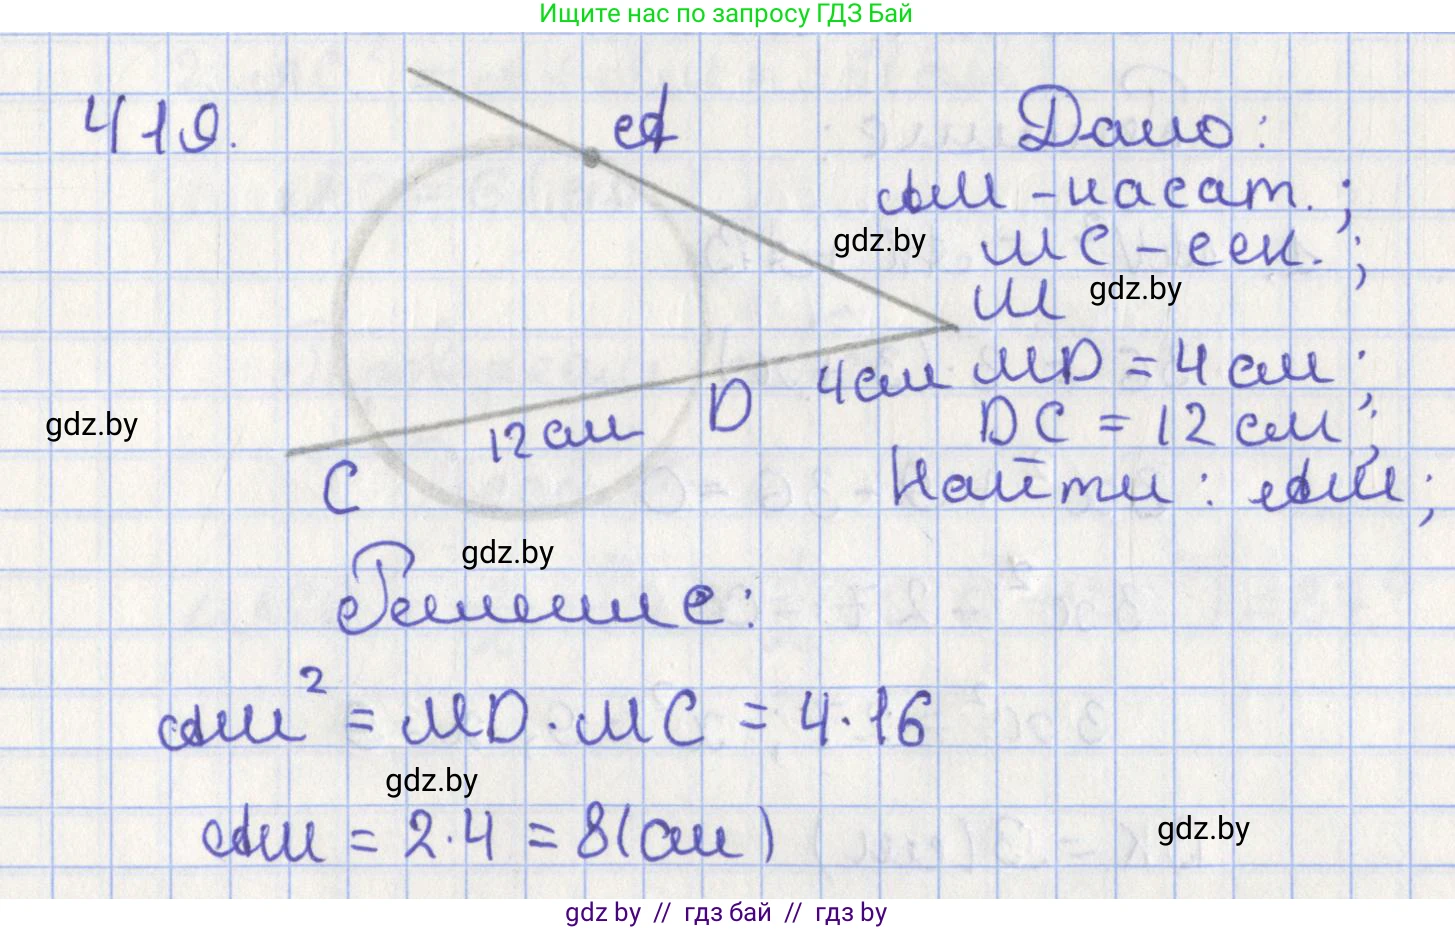 Ищите нас по запросу ГДЗ Бай
419.
A
Дано:
AM - касат.;
gdz.by
MC - сек.;
M
gdz.by
4 см
MD = 4 см;
D
gdz.by
12 см
DC = 12 см;
C
Найти: AM;
gdz.by
Решение:
AM² = MD · MC = 4 · 16
gdz.by
AM = 2 · 4 = 8 (см)
gdz.by
gdz by // гдз бай // гдз by